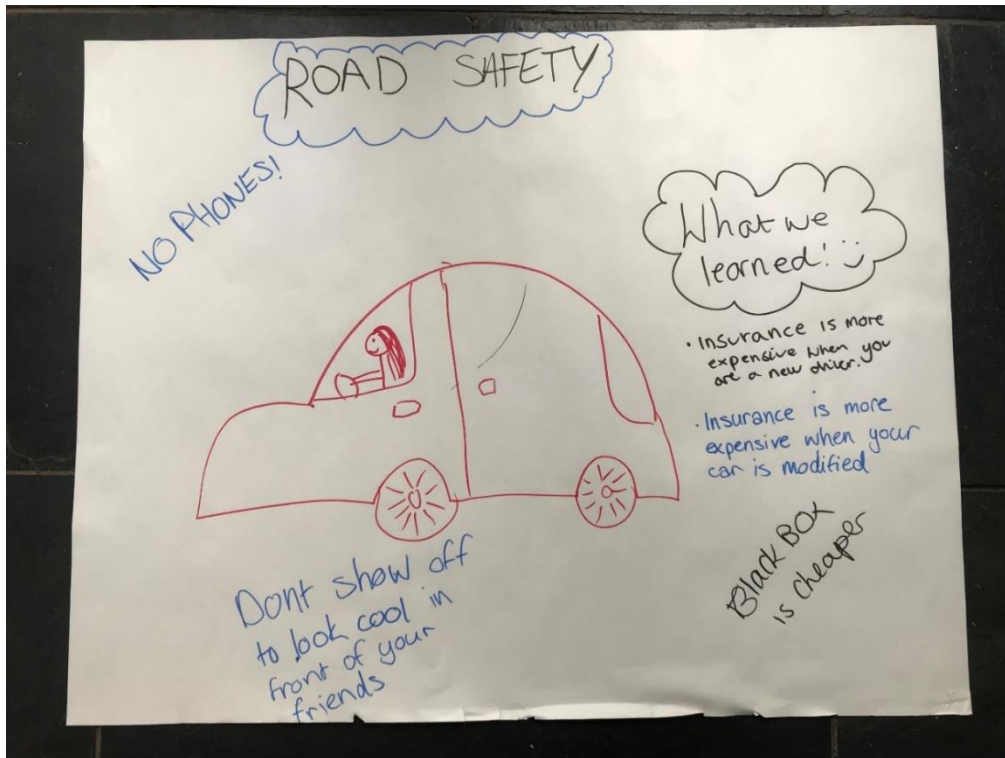 ROAD SAFETY
NO PHONES!
What we
learned!
· Insurance is more
expensive when you
are a new driver.
· Insurance is more
expensive when your
car is modified
Black BOX
is cheaper
Dont show off
to look cool in
front of your
friends